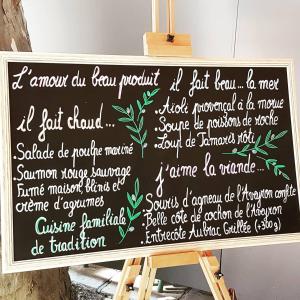 L'amour du beau produit
il fait chaud...
• Salade de poulpe mariné
• Saumon rouge sauvage
Fumé maison, blinis et
crème d'agrumes
Cuisine familiale
de tradition
il fait beau... la mer
• Aïoli provençal à la morue
• Soupe de poissons de roche
• Loup de Tamaris rôti
j'aime la viande...
• Souris d'agneau de l'Aveyron confite
• Belle côte de cochon de l'Aveyron
• Entrecôte Aubrac Grillée (+300g)